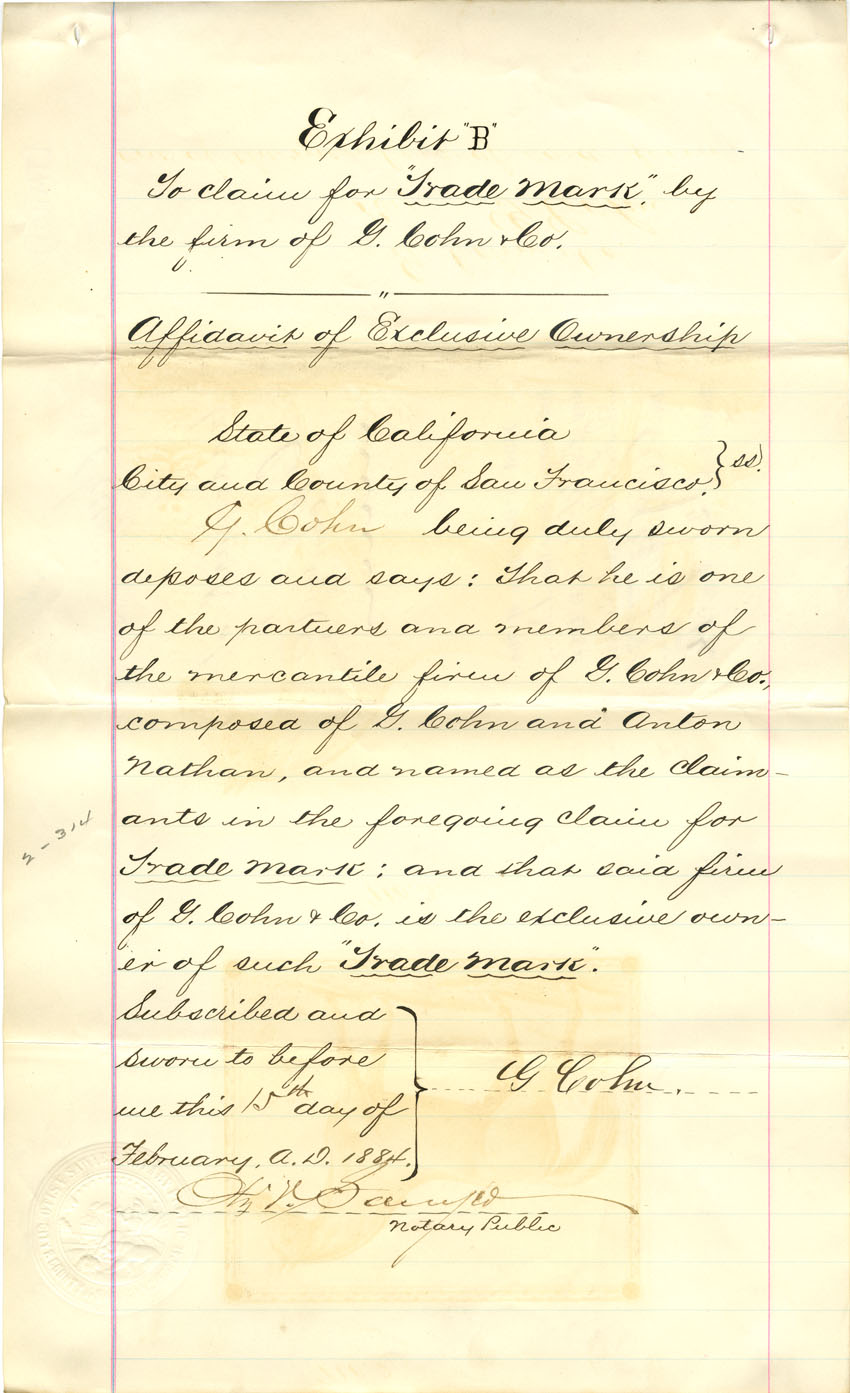 Exhibit "B"
To claim for "Trade Mark", by
the firm of G. Cohn & Co.
Affidavit of Exclusive Ownership
State of California
City and County of San Francisco. } ss.
G. Cohn being duly sworn
deposes and says: That he is one
of the partners and members of
the mercantile firm of G. Cohn & Co.,
composed of G. Cohn and Anton
Nathan, and named as the claim-
ants in the foregoing claim for
Trade Mark; and that said firm
of G. Cohn & Co. is the exclusive own-
er of such "Trade Mark".
Subscribed and
sworn to before
me this 15th day of
February, A.D. 1884.
G Cohn.
Notary Public
2-314